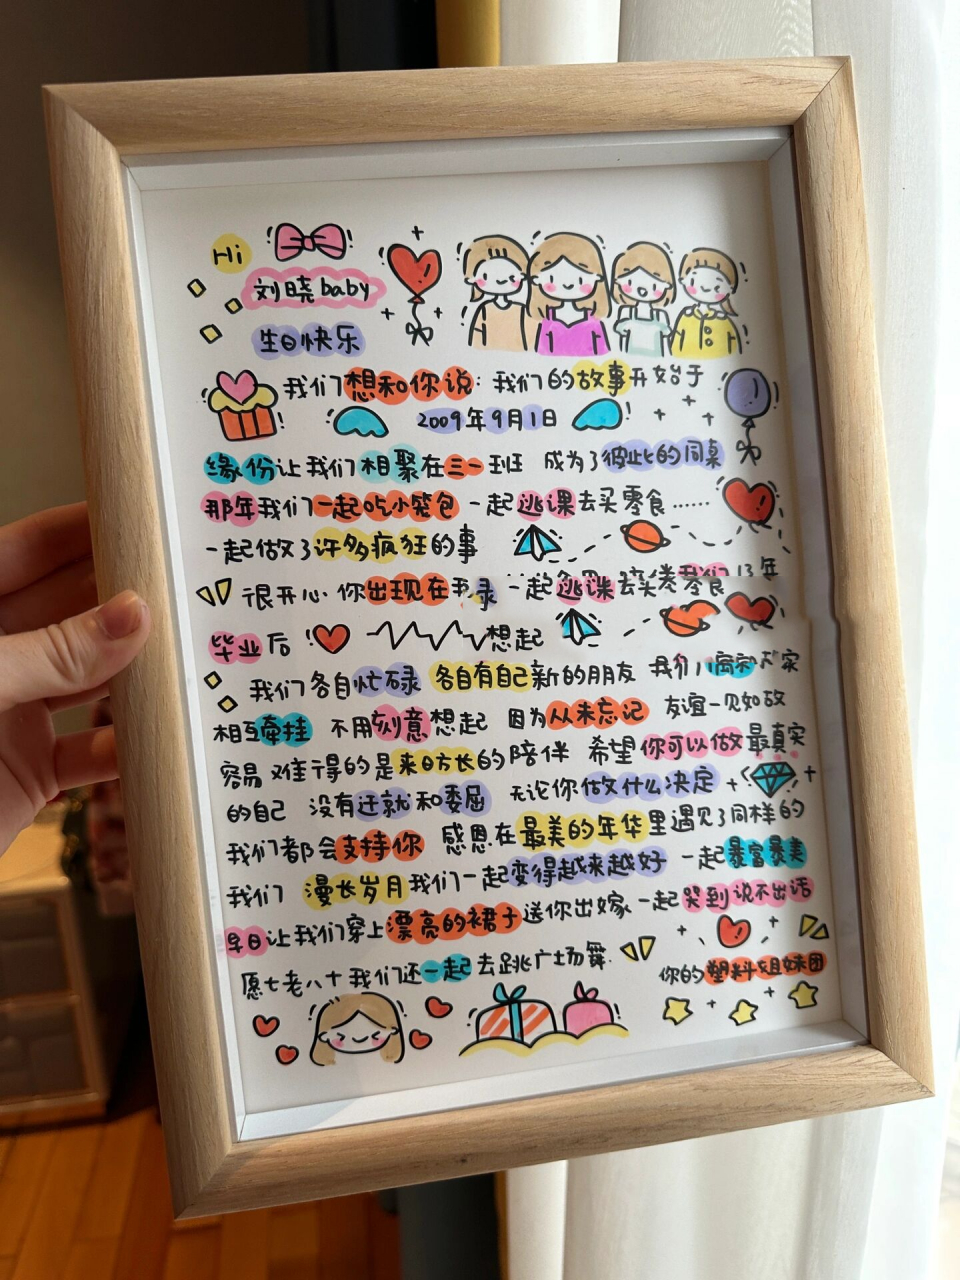 Hi
刘晓baby
生日快乐
我们想和你说: 我们的故事开始于
2009年9月1日
缘份让我们相聚在三一班 成为了彼此的同桌
那年我们一起吃小笼包 一起逃课去买零食……
一起做了许多疯狂的事
很开心 你出现在 一起逃课去 零食 13年
毕业后 想起
我们各自忙碌 各自有自己新的朋友 我们 家
相互牵挂 不用刻意想起 因为从未忘记 友谊一见如故
容易 难得的是来日方长的陪伴 希望你可以做最真实
的自己 没有迁就和委屈 无论你做什么决定
我们都会支持你 感恩在最美的年华里遇见了同样的
我们 漫长岁月我们一起变得越来越好 一起暴富暴美
早日让我们穿上漂亮的裙子送你出嫁 一起哭到说不出话
愿七老八十我们还一起去跳广场舞
你的塑料姐妹团